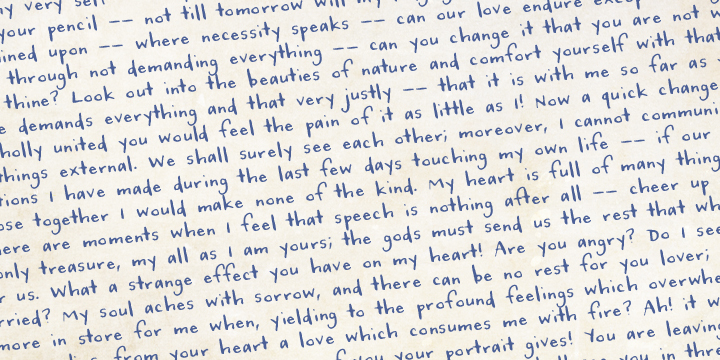 my very self
your pencil -- not till tomorrow will my
ined upon -- where necessity speaks -- can our love endure except
through not demanding everything -- can you change it that you are not w
thine? Look out into the beauties of nature and comfort yourself with that
e demands everything and that very justly -- that it is with me so far as
holly united you would feel the pain of it as little as I! Now a quick change
things external. We shall surely see each other; moreover, I cannot communi
tions I have made during the last few days touching my own life -- if our
ose together I would make none of the kind. My heart is full of many thing
ere are moments when I feel that speech is nothing after all -- cheer up
only treasure, my all as I am yours; the gods must send us the rest that wh
r us. What a strange effect you have on my heart! Are you angry? Do I see
rried? My soul aches with sorrow, and there can be no rest for you lover;
more in store for me when, yielding to the profound feelings which overwhe
from your heart a love which consumes me with fire? Ah! it w
you your portrait gives! You are leavin
you in thre